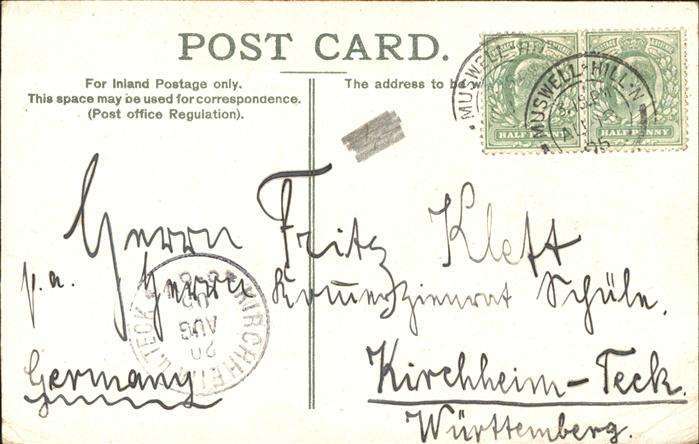 POST CARD.
For Inland Postage only.
This space may be used for correspondence.
(Post office Regulation.)
The address to be
HALF PENNY HALF PENNY
MUSWELL-HILL·N
Herrn Fritz Kleft
p.a. Herrn Kommerzienrat Schüle.
Kirchheim-Teck
Germany
Württemberg.
KIRCHHEIM U. TECK
20
AUG